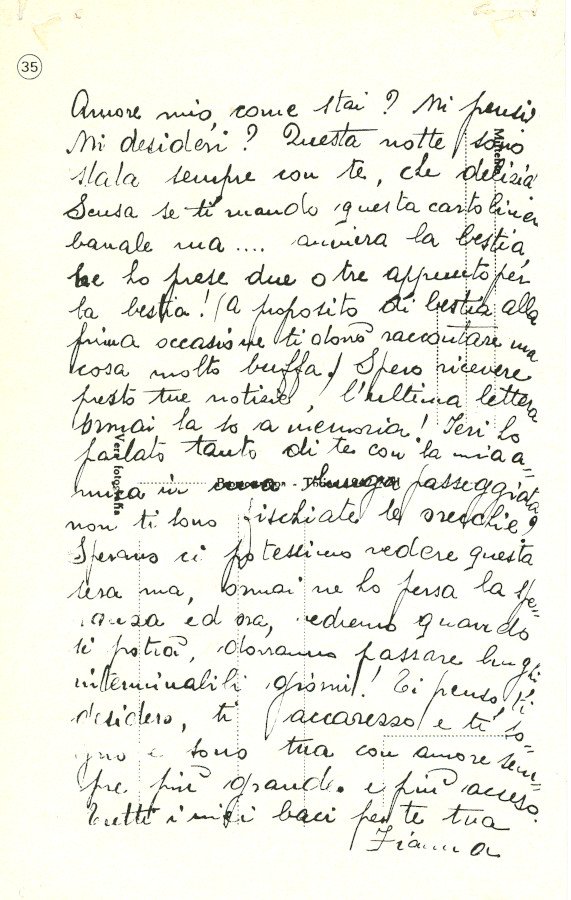 35
Amore mio, come stai? Mi pensi?
Mi desideri? Questa notte sono
stata sempre con te, che delizia
Scusa se ti mando questa cartolina
banale ma .... ammira la bestia
ne ho prese due o tre appunto per
la bestia! (A proposito di bestia alla
prima occasione ti dovrò raccontare una
cosa molto buffa.) Spero ricevere
presto tue notizie, l'ultima lettera
ormai la so a memoria! Ieri ho
parlato tanto di te con la mia a-
mica in passeggiata
non ti sono fischiate le orecchie?
Speravo ci potessimo vedere questa
sera ma, ormai ne ho persa la spe-
ranza ed ora, vedremo quando
si potrà, dovranno passare lunghi
interminabili giorni! Ti penso, ti
desidero, ti accarezzo e ti so-
gno e sono tua con amore sem-
pre più grande e più acceso.
Tutti i miei baci per te tua
Vera fotografia